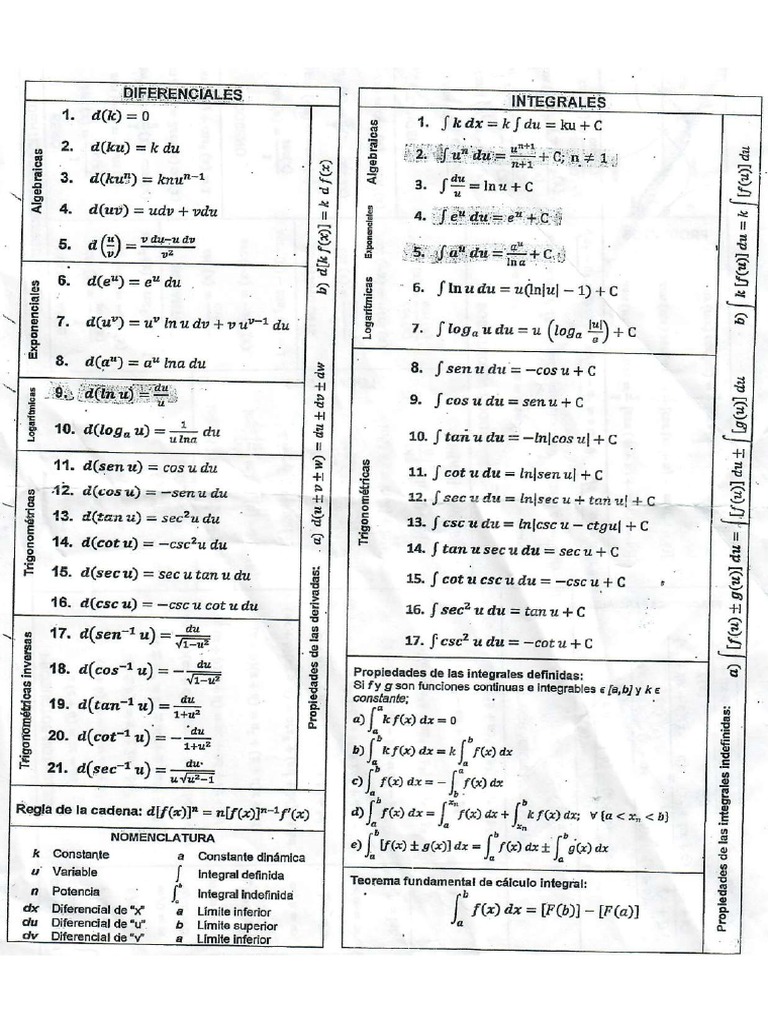 DIFERENCIALES
Algebraicas
1. d(k) = 0
2. d(ku) = k du
3. d(kuⁿ) = knuⁿ⁻¹
4. d(uv) = udv + vdu
5. d(u/v) = (v du−u dv)/v²
Exponenciales
6. d(eᵘ) = eᵘ du
7. d(uᵛ) = uᵛ ln u dv + v uᵛ⁻¹ du
8. d(aᵘ) = aᵘ lna du
Logarítmicas
9. d(ln u) = du/u
10. d(logₐ u) = 1/(u lna) du
Trigonométricas
11. d(sen u) = cos u du
12. d(cos u) = −sen u du
13. d(tan u) = sec²u du
14. d(cot u) = −csc²u du
15. d(sec u) = sec u tan u du
16. d(csc u) = −csc u cot u du
Trigonométricas inversas
17. d(sen⁻¹ u) = du/√(1−u²)
18. d(cos⁻¹ u) = − du/√(1−u²)
19. d(tan⁻¹ u) = du/(1+u²)
20. d(cot⁻¹ u) = − du/(1+u²)
21. d(sec⁻¹ u) = du/(u√(u²−1))
Propiedades de las derivadas: a) d(u ± v ± w) = du ± dv ± dw b) d[k f(x)] = k d f(x)
Regla de la cadena: d[f(x)]ⁿ = n[f(x)]ⁿ⁻¹f′(x)
NOMENCLATURA
k Constante a Constante dinámica
u Variable ∫ Integral definida
n Potencia ∫ₐᵇ Integral indefinida
dx Diferencial de "x" a Límite inferior
du Diferencial de "u" b Límite superior
dv Diferencial de "v" a Límite inferior
INTEGRALES
Algebraicas
1. ∫ k dx = k ∫ du = ku + C
2. ∫ uⁿ du = uⁿ⁺¹/(n+1) + C; n ≠ 1
3. ∫ du/u = ln u + C
Exponenciales
4. ∫ eᵘ du = eᵘ + C
5. ∫ aᵘ du = aᵘ/ln a + C
Logarítmicas
6. ∫ ln u du = u(ln|u| − 1) + C
7. ∫ logₐ u du = u (logₐ |u|/a) + C
Trigonométricas
8. ∫ sen u du = −cos u + C
9. ∫ cos u du = sen u + C
10. ∫ tan u du = −ln|cos u| + C
11. ∫ cot u du = ln|sen u| + C
12. ∫ sec u du = ln|sec u + tan u| + C
13. ∫ csc u du = ln|csc u − ctgu| + C
14. ∫ tan u sec u du = sec u + C
15. ∫ cot u csc u du = −csc u + C
16. ∫ sec² u du = tan u + C
17. ∫ csc² u du = −cot u + C
Propiedades de las integrales definidas:
Si f y g son funciones continuas e integrables ϵ [a,b] y k ϵ
constante;
a) ∫ₐᵃ k f(x) dx = 0
b) ∫ₐᵇ k f(x) dx = k ∫ₐᵇ f(x) dx
c) ∫ₐᵇ f(x) dx = − ∫_b^a f(x) dx
d) ∫ₐᵇ f(x) dx = ∫_a^{xₙ} f(x) dx + ∫_{xₙ}^b k f(x) dx; ∀ {a < xₙ < b}
e) ∫ₐᵇ [f(x) ± g(x)] dx = ∫ₐᵇ f(x) dx ± ∫ₐᵇ g(x) dx
Teorema fundamental de cálculo integral:
∫ₐᵇ f(x) dx = [F(b)] − [F(a)]
Propiedades de las integrales indefinidas: a) ∫[f(u) ± g(u)] du = ∫[f(u)] du ± ∫[g(u)] du b) ∫ k [f(u)] du = k ∫[f(u)] du